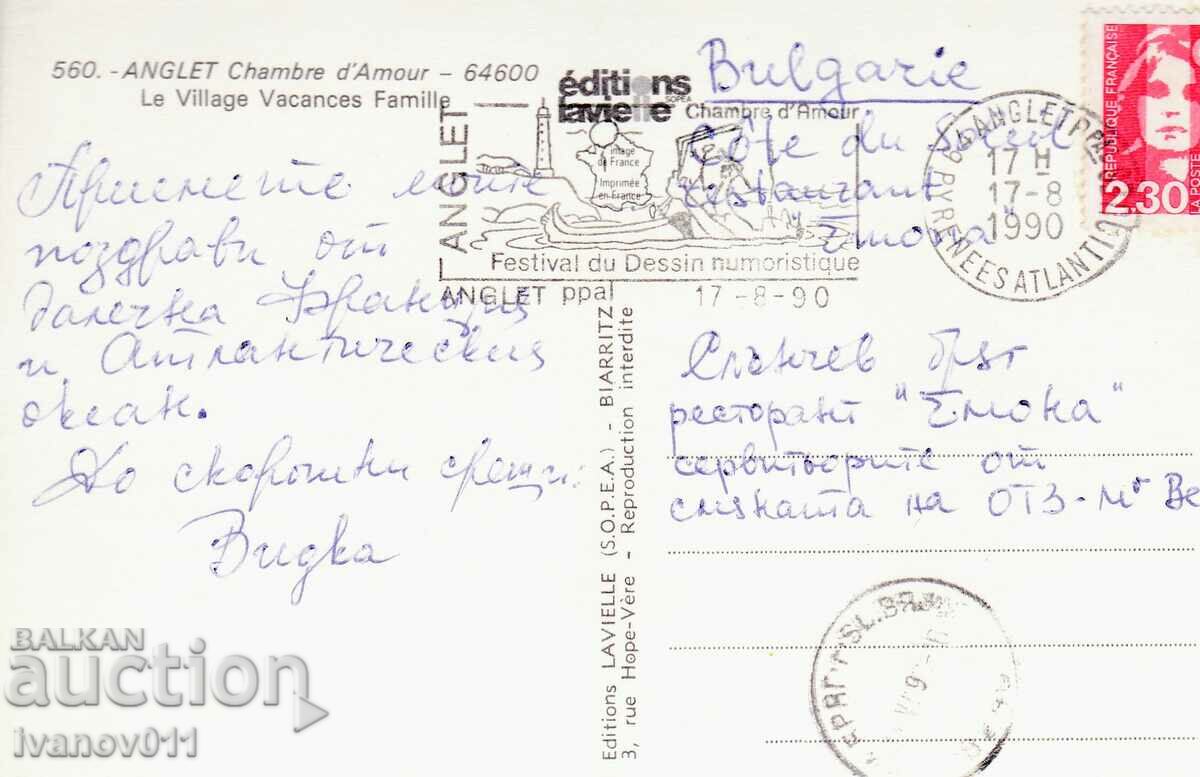 560. - ANGLET Chambre d'Amour - 64600
Le Village Vacances Famille
éditions
lavielle
SOPEA
image
de France
Imprimée
en France
Bulgarie
Côte du Soleil
restaurant
"Emona"
REPUBLIQUE FRANÇAISE
2,30
LA POSTE
ANGLET PPAL
17 H
17-8
1990
PYRENEES ATLANTIQUES
ANGLET
Chambre d'Amour
Festival du Dessin humoristique
ANGLET ppal 17-8-90
Приемете моите
поздрави от
далечна Франция
и Атлантическия
океан.
До скорошни срещи:
Видка
Editions LAVIELLE (S.O.P.E.A.) - BIARRITZ
3, rue Hope-Vère - Reproduction interdite
Слънчев бряг
ресторант "Емона"
сервитьорите от
смяната на ОТЗ-
SL.BRJAG
BALKAN
auction
ivanov0-1